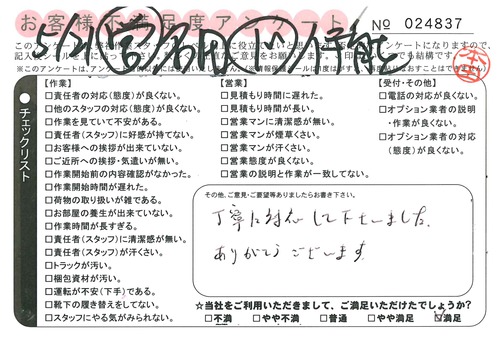 お客様不満足度アンケート
№ 024837
チェックリスト
【作業】
□責任者の対応(態度)が良くない。
□他のスタッフの対応(態度)が良くない。
□作業を見ていて不安がある。
□責任者(スタッフ)に好感が持てない。
□お客様への挨拶が出来ていない。
□ご近所への挨拶・気遣いが無い。
□作業開始前の内容確認がなかった。
□作業開始時間が遅れた。
□荷物の取り扱いが雑である。
□お部屋の養生が出来ていない。
□作業時間が長すぎる。
□責任者(スタッフ)に清潔感が無い。
□責任者(スタッフ)が汗くさい。
□トラックが汚い。
□梱包資材が汚い。
□運転が不安(下手)である。
□靴下の履き替えをしてない。
□スタッフにやる気がみられない。
【営業】
□見積もり時間に遅れた。
□見積もり時間が長い。
□営業マンに清潔感が無い。
□営業マンが煙草くさい。
□営業マンが汗くさい。
□営業態度が良くない。
□営業の説明と作業が一致してない。
【受付・その他】
□電話の対応が良くない。
□オプション業者の説明
・作業が良くない。
□オプション業者の対応
(態度)が良くない。
その他、ご意見・ご要望等ありましたらお書き下さい。
丁寧に対応して下さいました。
ありがとうございます
☆当社をご利用いただきまして、ご満足いただけたでしょうか?
□不満 □やや不満 □普通 □やや満足 ☑満足